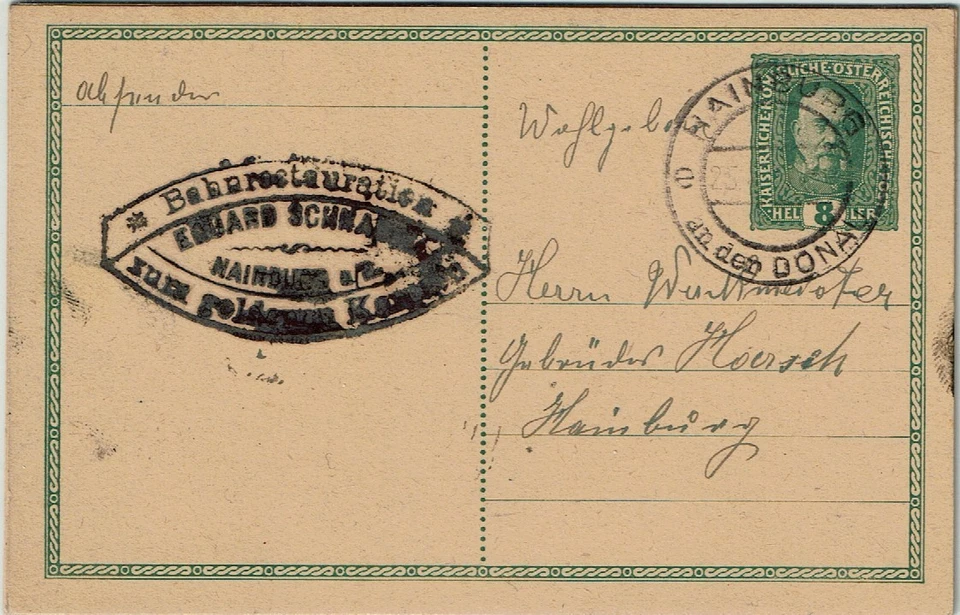 absender
* Bahnrestauration *
EDUARD SCHNA
HAINBURG a/D.
zum goldenen
Wohlgeb
KAISERLICHE KÖNIGLICHE ÖSTERREICHISCHE POST
HELLER
8
HAINBURG
25
an der DONAU
Herrn Werkmeister
Gebrüder Hoersch
Hainburg